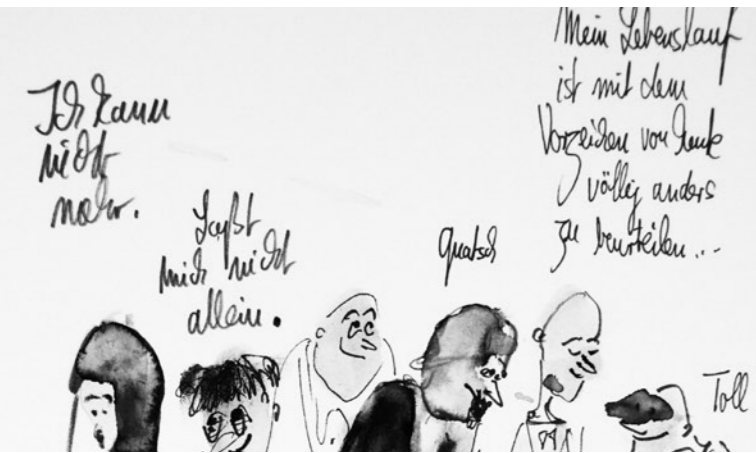 Ich kann
nicht
mehr.
Laßt
mich nicht
allein.
Quatsch
Mein Lebenslauf
ist mit dem
Vorzeichen von heute
völlig anders
zu beurteilen...
Toll